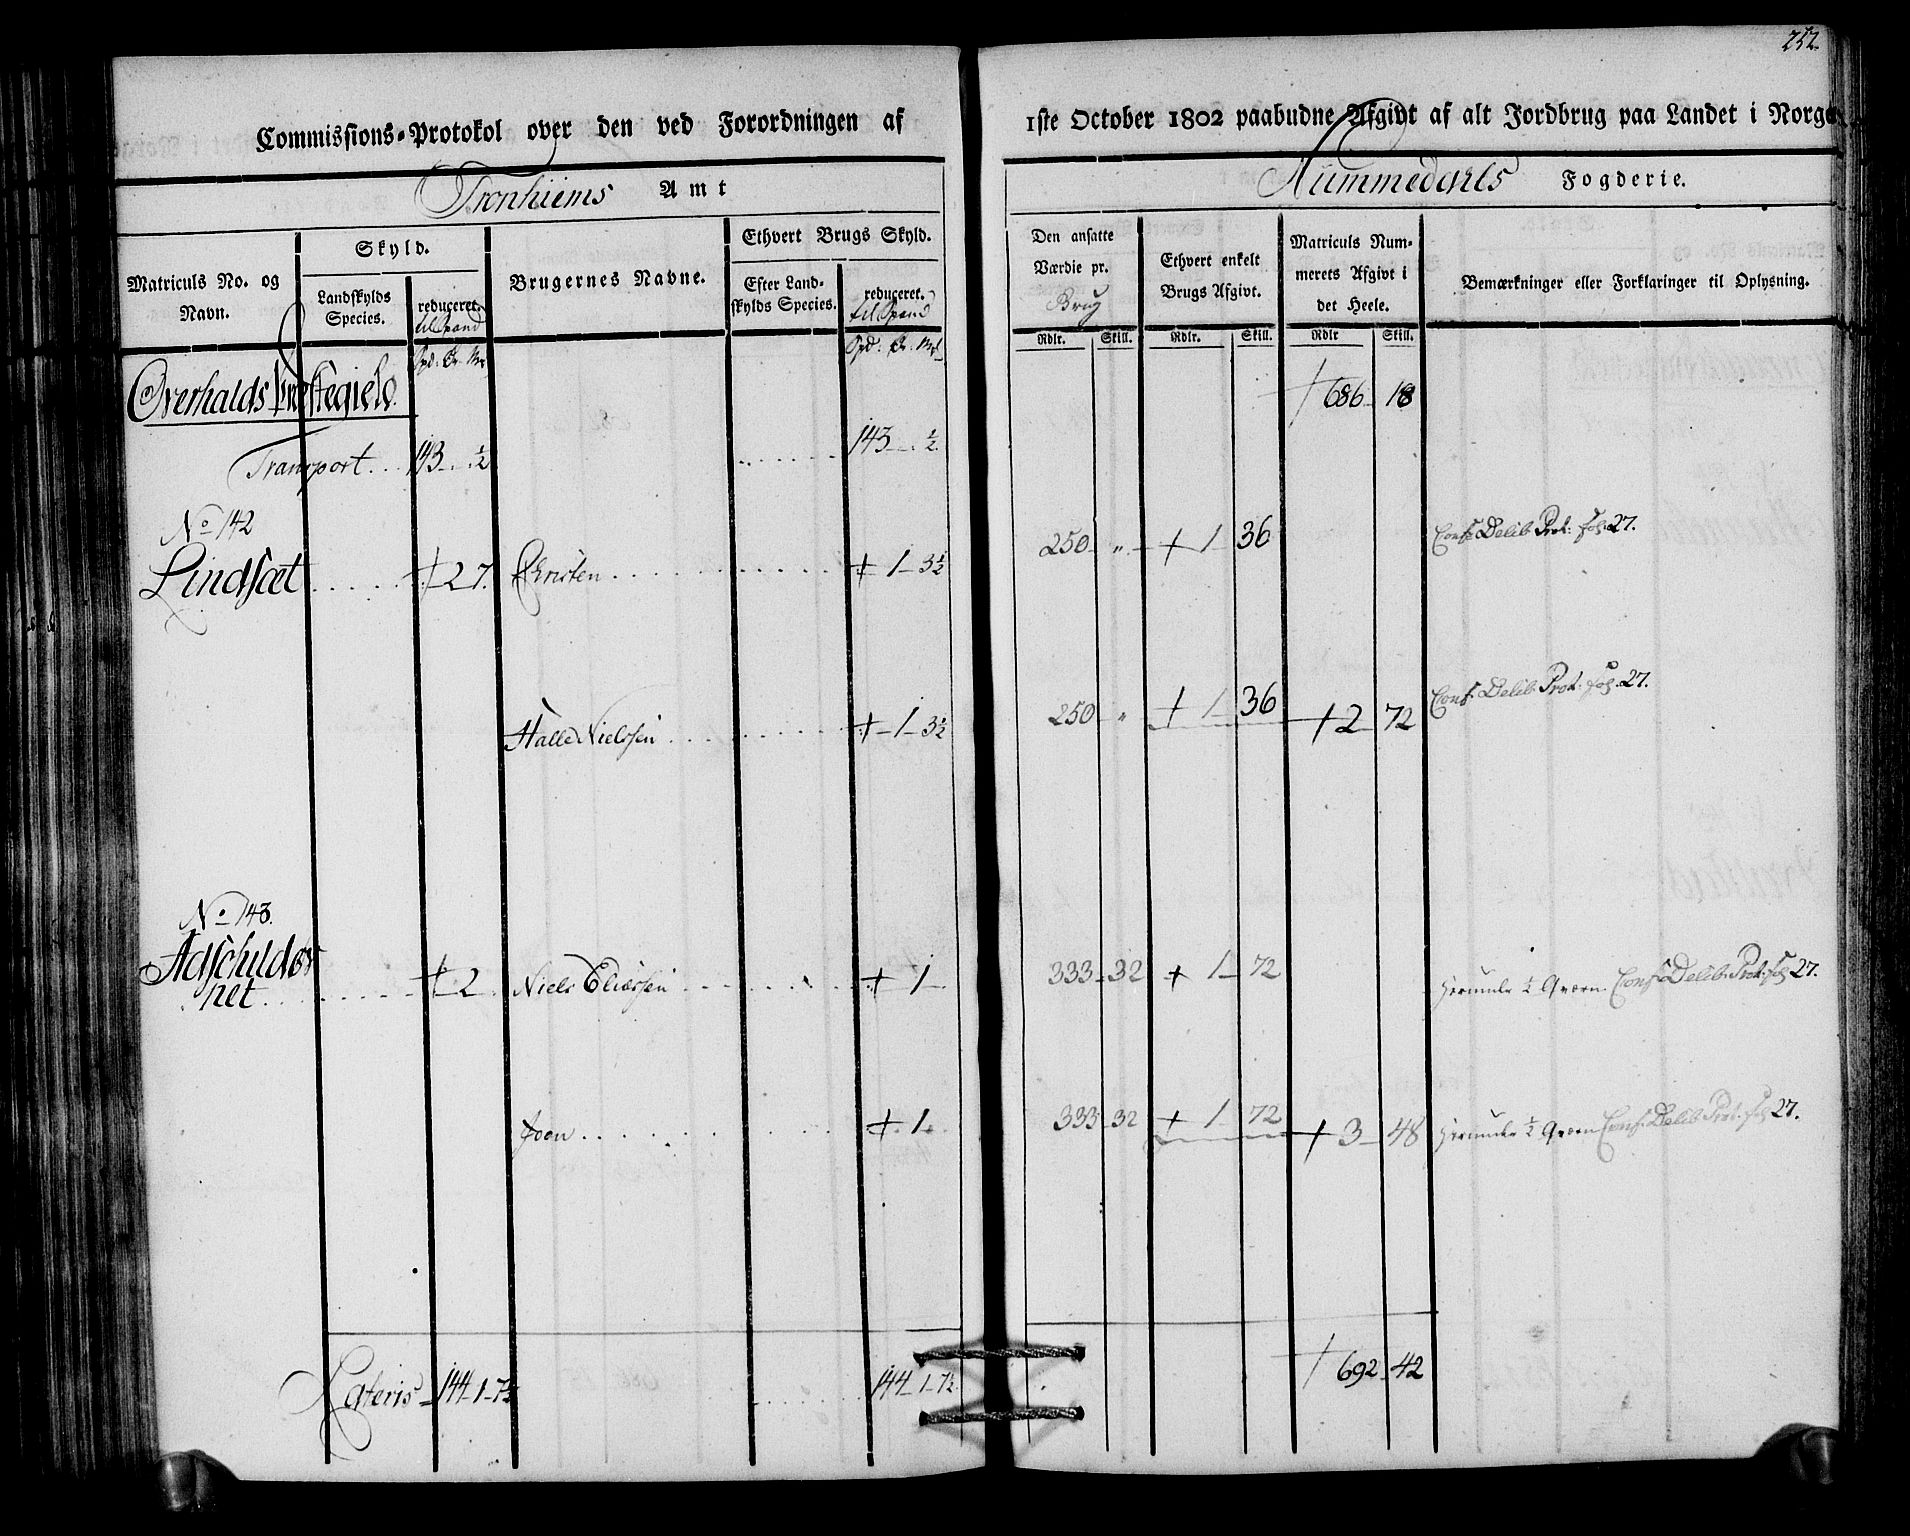 252.
Commissions-Protokol over den ved Forordningen af 1ste October 1802 paabudne Afgivt af alt Jordbrug paa Landet i Norge
Tronhiems Amt
Nummedahls Fogderie.
Matriculs No. og Navn.
Skyld.
Landskylds Species.
reduceret. til Spand
Brugernes Navne.
Ethvert Brugs Skyld.
Efter Landskylds Species.
reduceret. til Spand
Den ansatte Værdie pr. Brug
Ethvert enkelt Brugs Afgivt.
Matriculs Nummerets Afgivt i det Heele.
Bemærkninger eller Forklaringer til Oplysning.
Spd: Ør. Mrl
Spd: Ør. Mrl
Rdlr. Skill. Rdlr. Skill. Rdlr Skill.
Overhalds Præstegield.
686 18
Transport... 143 - . ½ 143 - . ½
No 142
Lindsæt ..... + 2 7. Christen ........... + 1 - 3½ 250 - " + 1 36 Conf: Delib: Prot: fol: 27.
Halle Nielssen ........ + 1 - 3½ 250 " + 1 36 + 2 72 Conf: Delib: Prot: fol. 27.
No 143.
Adschilders
net ....... + 2 Niels Eliassen ...... + 1 - 333 - 32 + 1 - 72 herunder ½ Qværn. Conf: Delib: Prot: fol 27.
Joen ........ + 1. 333 - 32 + 1 72 + 3 - 48 herunder ½ Qværn Conf: Delib: Prot: fol 27.
Lateris - 144 - 1 - 7½ ...... 144 - 1 - 7½ 692 - 42